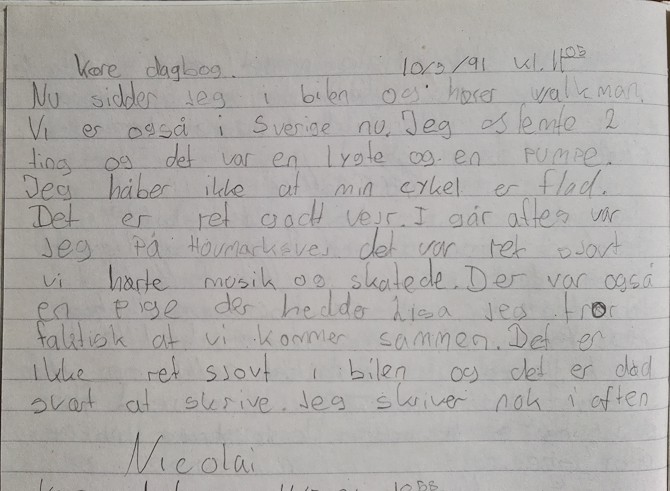 Kære dagbog. 10/5/91 kl. 11⁰⁵
Nu sidder jeg i bilen og hører walkman.
Vi er også i Sverige nu. Jeg 2
ting og det var en lygte og en PUMPE.
Jeg håber ikke at min cykel er flad.
Det er ret godt vejr. I går aftes var
jeg på Hovmarksvej det var ret sjovt
vi hørte musik og skatede. Der var også
en pige der hedder Lisa jeg tror
faktisk at vi kommer sammen. Det er
ikke ret sjovt i bilen og det er død
svært at skrive. Jeg skriver nok i aften
Nicolai